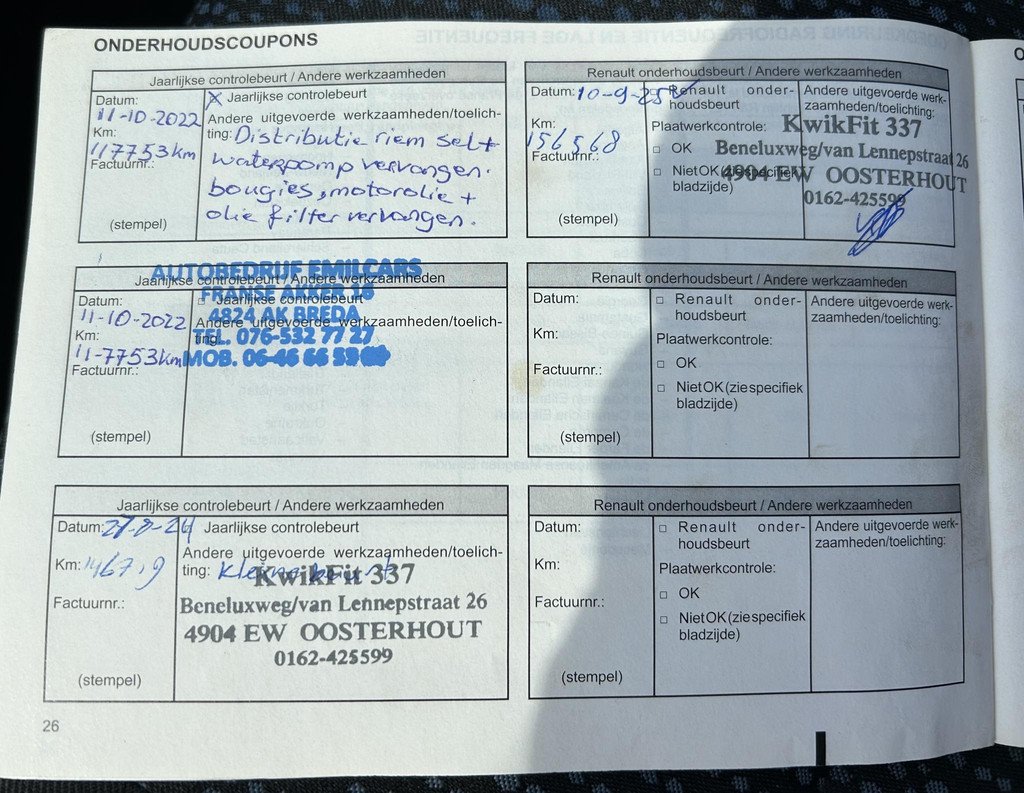 ONDERHOUDSCOUPONS
Jaarlijkse controlebeurt / Andere werkzaamheden
Datum:
11-10-2022
Km:
117753 km
Factuurnr.:
(stempel)
X Jaarlijkse controlebeurt
Andere uitgevoerde werkzaamheden/toelich-
ting: Distributie riem set +
waterpomp vervangen.
bougies, motorolie +
olie filter vervangen.
Renault onderhoudsbeurt / Andere werkzaamheden
Datum: 10-9-25
Km:
156568
Factuurnr.:
(stempel)
Renault onder-
houdsbeurt
Plaatwerkcontrole:
□ OK
□ Niet OK (zie specifiek
bladzijde)
Andere uitgevoerde werk-
zaamheden/toelichting:
KwikFit 337
Beneluxweg/van Lennepstraat 26
4904 EW OOSTERHOUT
0162-425599
Jaarlijkse controlebeurt / Andere werkzaamheden
Datum:
11-10-2022
Km:
117753 km
Factuurnr.:
(stempel)
□ Jaarlijkse controlebeurt
Andere uitgevoerde werkzaamheden/toelich-
ting:
AUTOBEDRIJF EMILCARS
FRANSE AKKER 16
4824 AK BREDA
TEL. 076-532 77 27
MOB. 06-46 66 53
Renault onderhoudsbeurt / Andere werkzaamheden
Datum:
Km:
Factuurnr.:
(stempel)
□ Renault onder-
houdsbeurt
Plaatwerkcontrole:
□ OK
□ Niet OK (zie specifiek
bladzijde)
Andere uitgevoerde werk-
zaamheden/toelichting:
Jaarlijkse controlebeurt / Andere werkzaamheden
Datum: 27-8-24
Km: 1467.9
Factuurnr.:
(stempel)
Jaarlijkse controlebeurt
Andere uitgevoerde werkzaamheden/toelich-
ting: kleine beurt
KwikFit 337
Beneluxweg/van Lennepstraat 26
4904 EW OOSTERHOUT
0162-425599
Renault onderhoudsbeurt / Andere werkzaamheden
Datum:
Km:
Factuurnr.:
(stempel)
□ Renault onder-
houdsbeurt
Plaatwerkcontrole:
□ OK
□ Niet OK (zie specifiek
bladzijde)
Andere uitgevoerde werk-
zaamheden/toelichting:
26